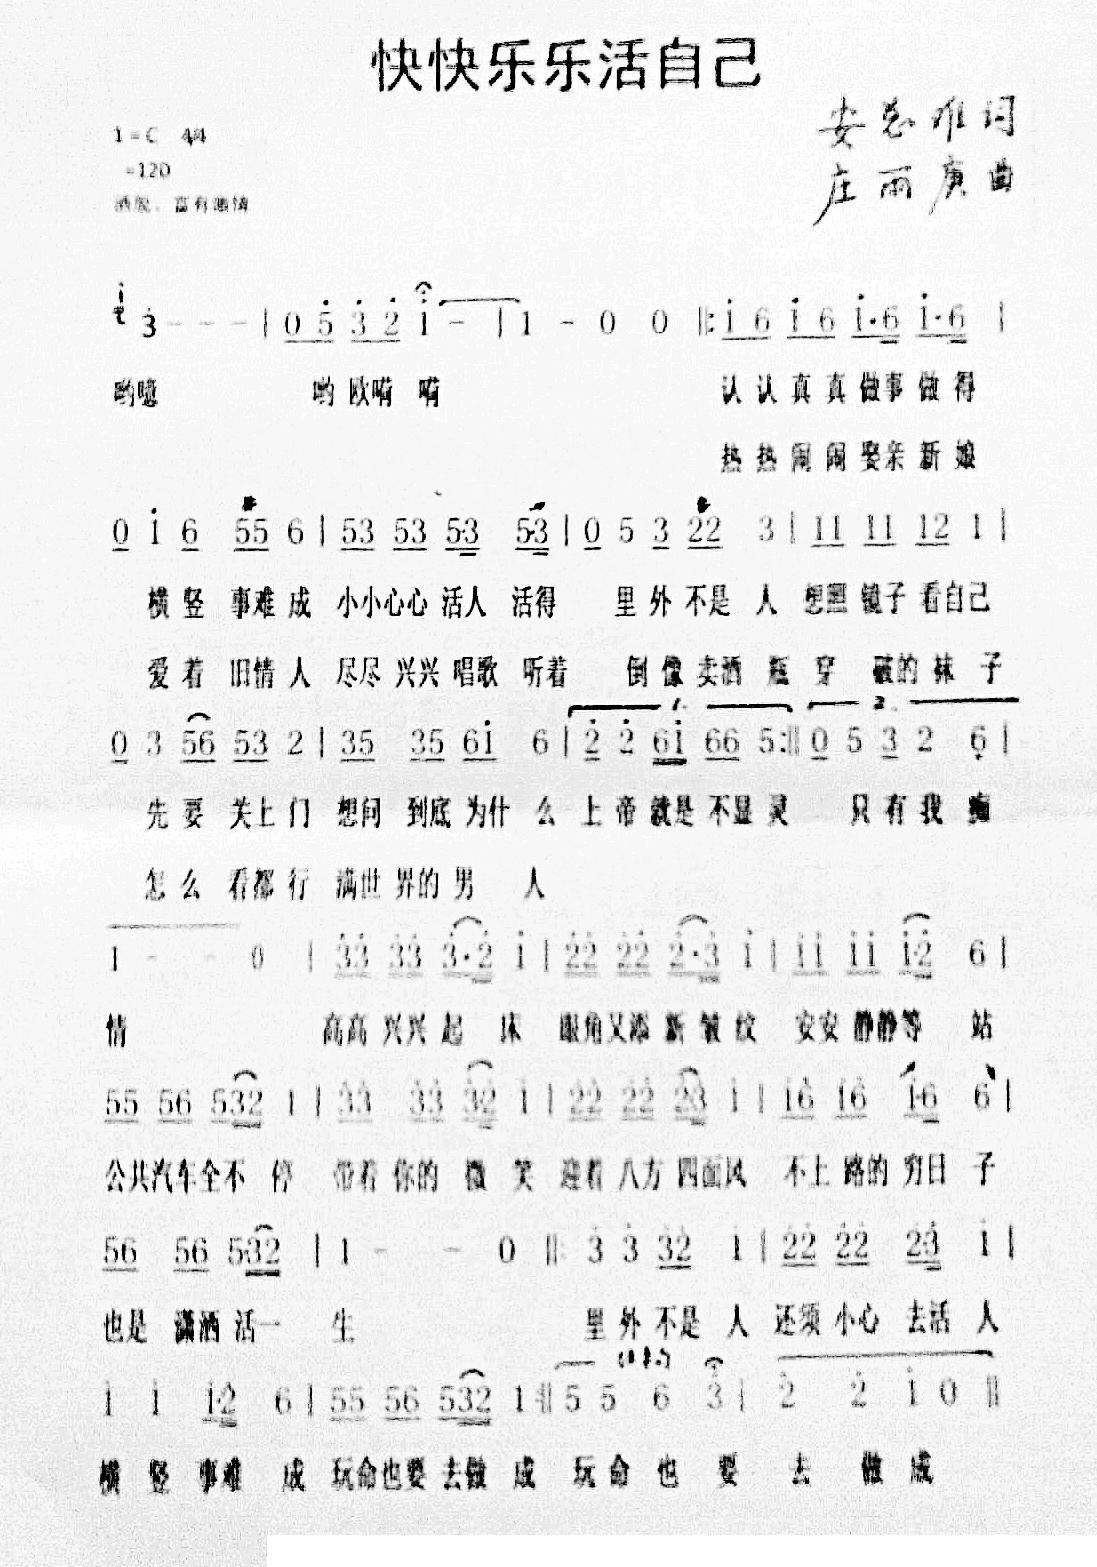 快快乐乐活自己
1=C 4/4
=120
洒脱、富有激情
词
庄雨庚 曲
3 - - - | 0 5 3 2 1 - | 1 - 0 0 ‖: 1 6 1 6 1·6 1·6 |
哟噫 哟 欧嗬 嗬 认 认 真 真 做事 做 得
热 热 闹 闹 娶亲 新 娘
0 1 6 55 6 | 53 53 53 53 | 0 5 3 22 3 | 11 11 12 1 |
横 竖 事难 成 小小心心 活人 活得 里 外 不是 人 想照 镜子 看自己
爱 着 旧情 人 尽尽 兴兴 唱歌 听着 倒 像 卖酒 瓶 穿 破的 袜 子
1. 2.
0 3 56 53 2 | 35 35 61 6 | 2 2 61 66 5 :‖ 0 5 3 2 6 |
先 要 关上 门 想问 到底 为什 么 上 帝 就是 不显 灵 只 有 我 痴
怎 么 看都 行 满世 界的 男 人
1 - - 0 | 33 33 3·2 1 | 22 22 2·3 1 | 11 11 1·2 6 |
情 高高 兴兴 起 床 眼角又添 新 皱 纹 安安 静静 等 站
55 56 532 1 | 33 33 32 1 | 22 22 23 1 | 16 16 1·6 6 |
公共汽车全不 停 带着 你的 微 笑 迎着 八方 四面风 不上 路的 穷日 子
56 56 532 | 1 - - 0 ‖: 3 3 32 1 | 22 22 23 1 |
也是 潇洒 活一 生 里 外 不是 人 还须 小心 去活 人
1 1 1·2 6 | 55 56 532 1 :‖ 5 5 6 3 | 2 2 1 0 ‖
横 竖 事难 成 玩命也要 去做 成 玩 命 也 要 去 做 成